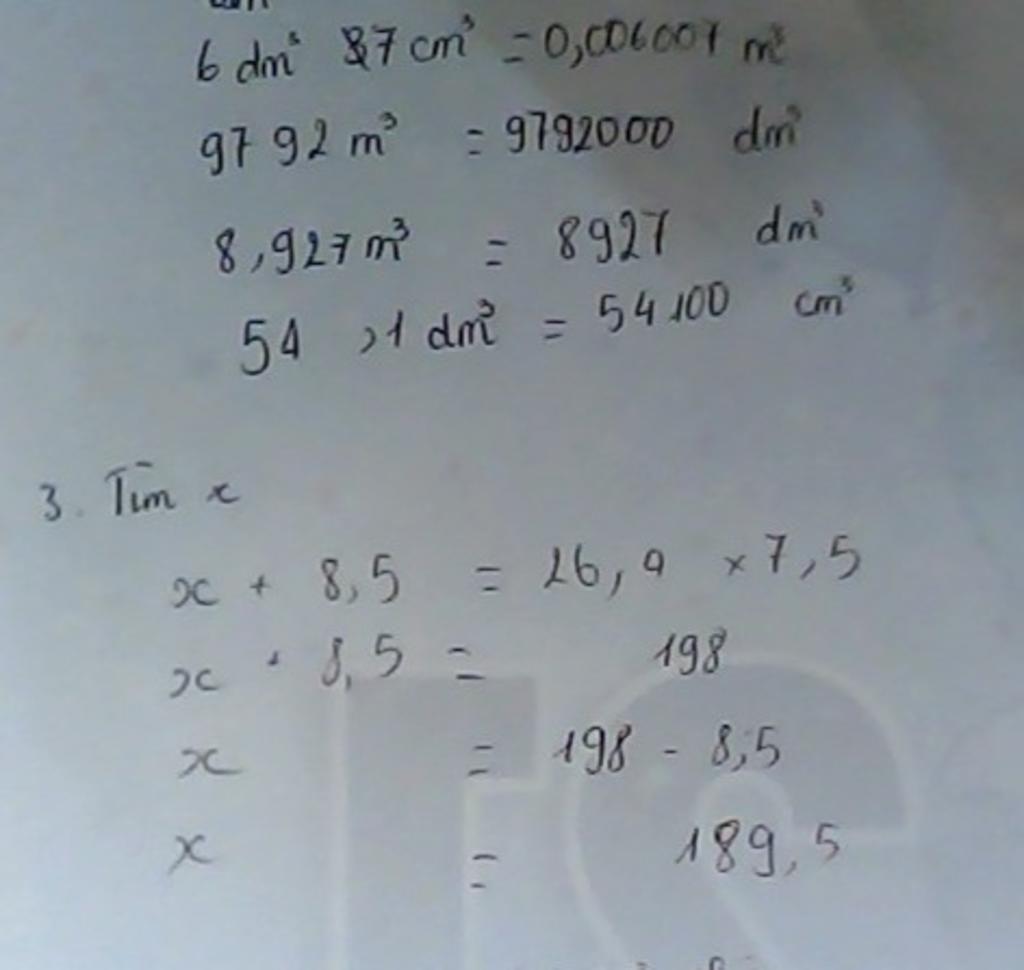 6 dm³ 87 cm³ = 0,006007 m³
9792 m³ = 9792000 dm³
8,927 m³ = 8927 dm³
54,1 dm³ = 54100 cm³
3. Tìm x
x + 8,5 = 26,4 × 7,5
x + 8,5 = 198
x = 198 - 8,5
x = 189,5